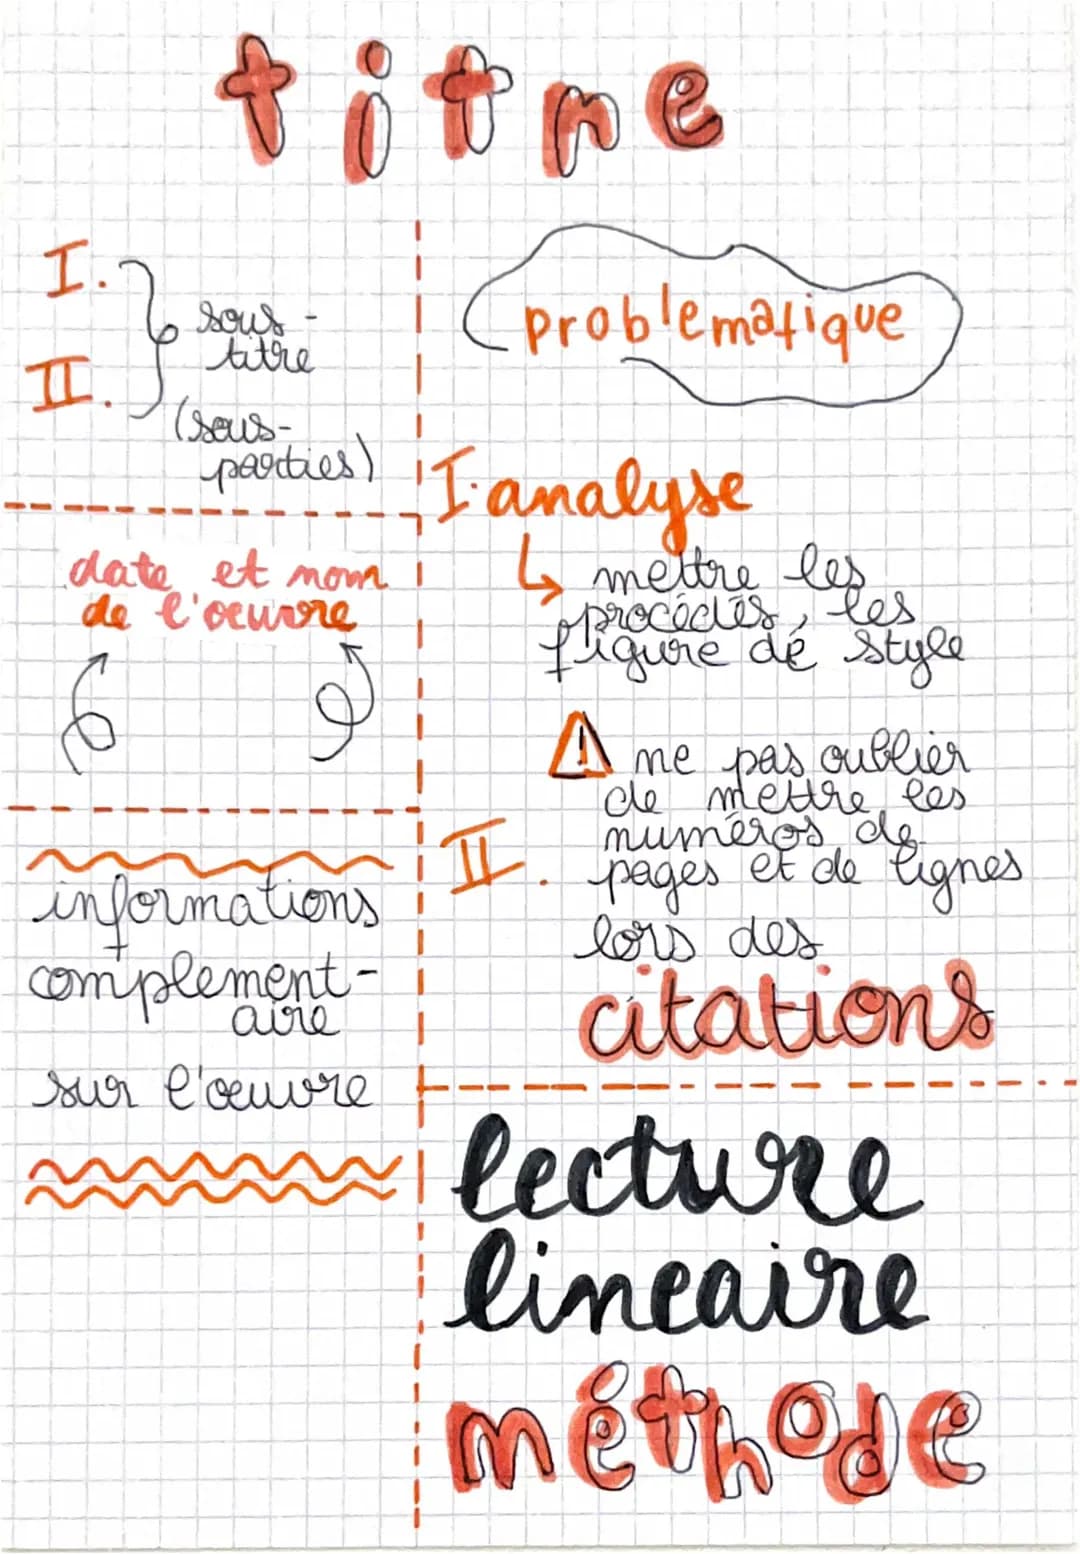 titre
I.
sous-
titre
II.
(sous-
parties)
date et nom
de l'oeuvre
informations
complement-
aire
sur l'oeuvre
problematique
I. analyse
mettre les
procédés, les
figure de style
! ne pas oublier
de mettre les
numéros de
II. pages et de lignes
lors des
citations
lecture
lineaire
méthode